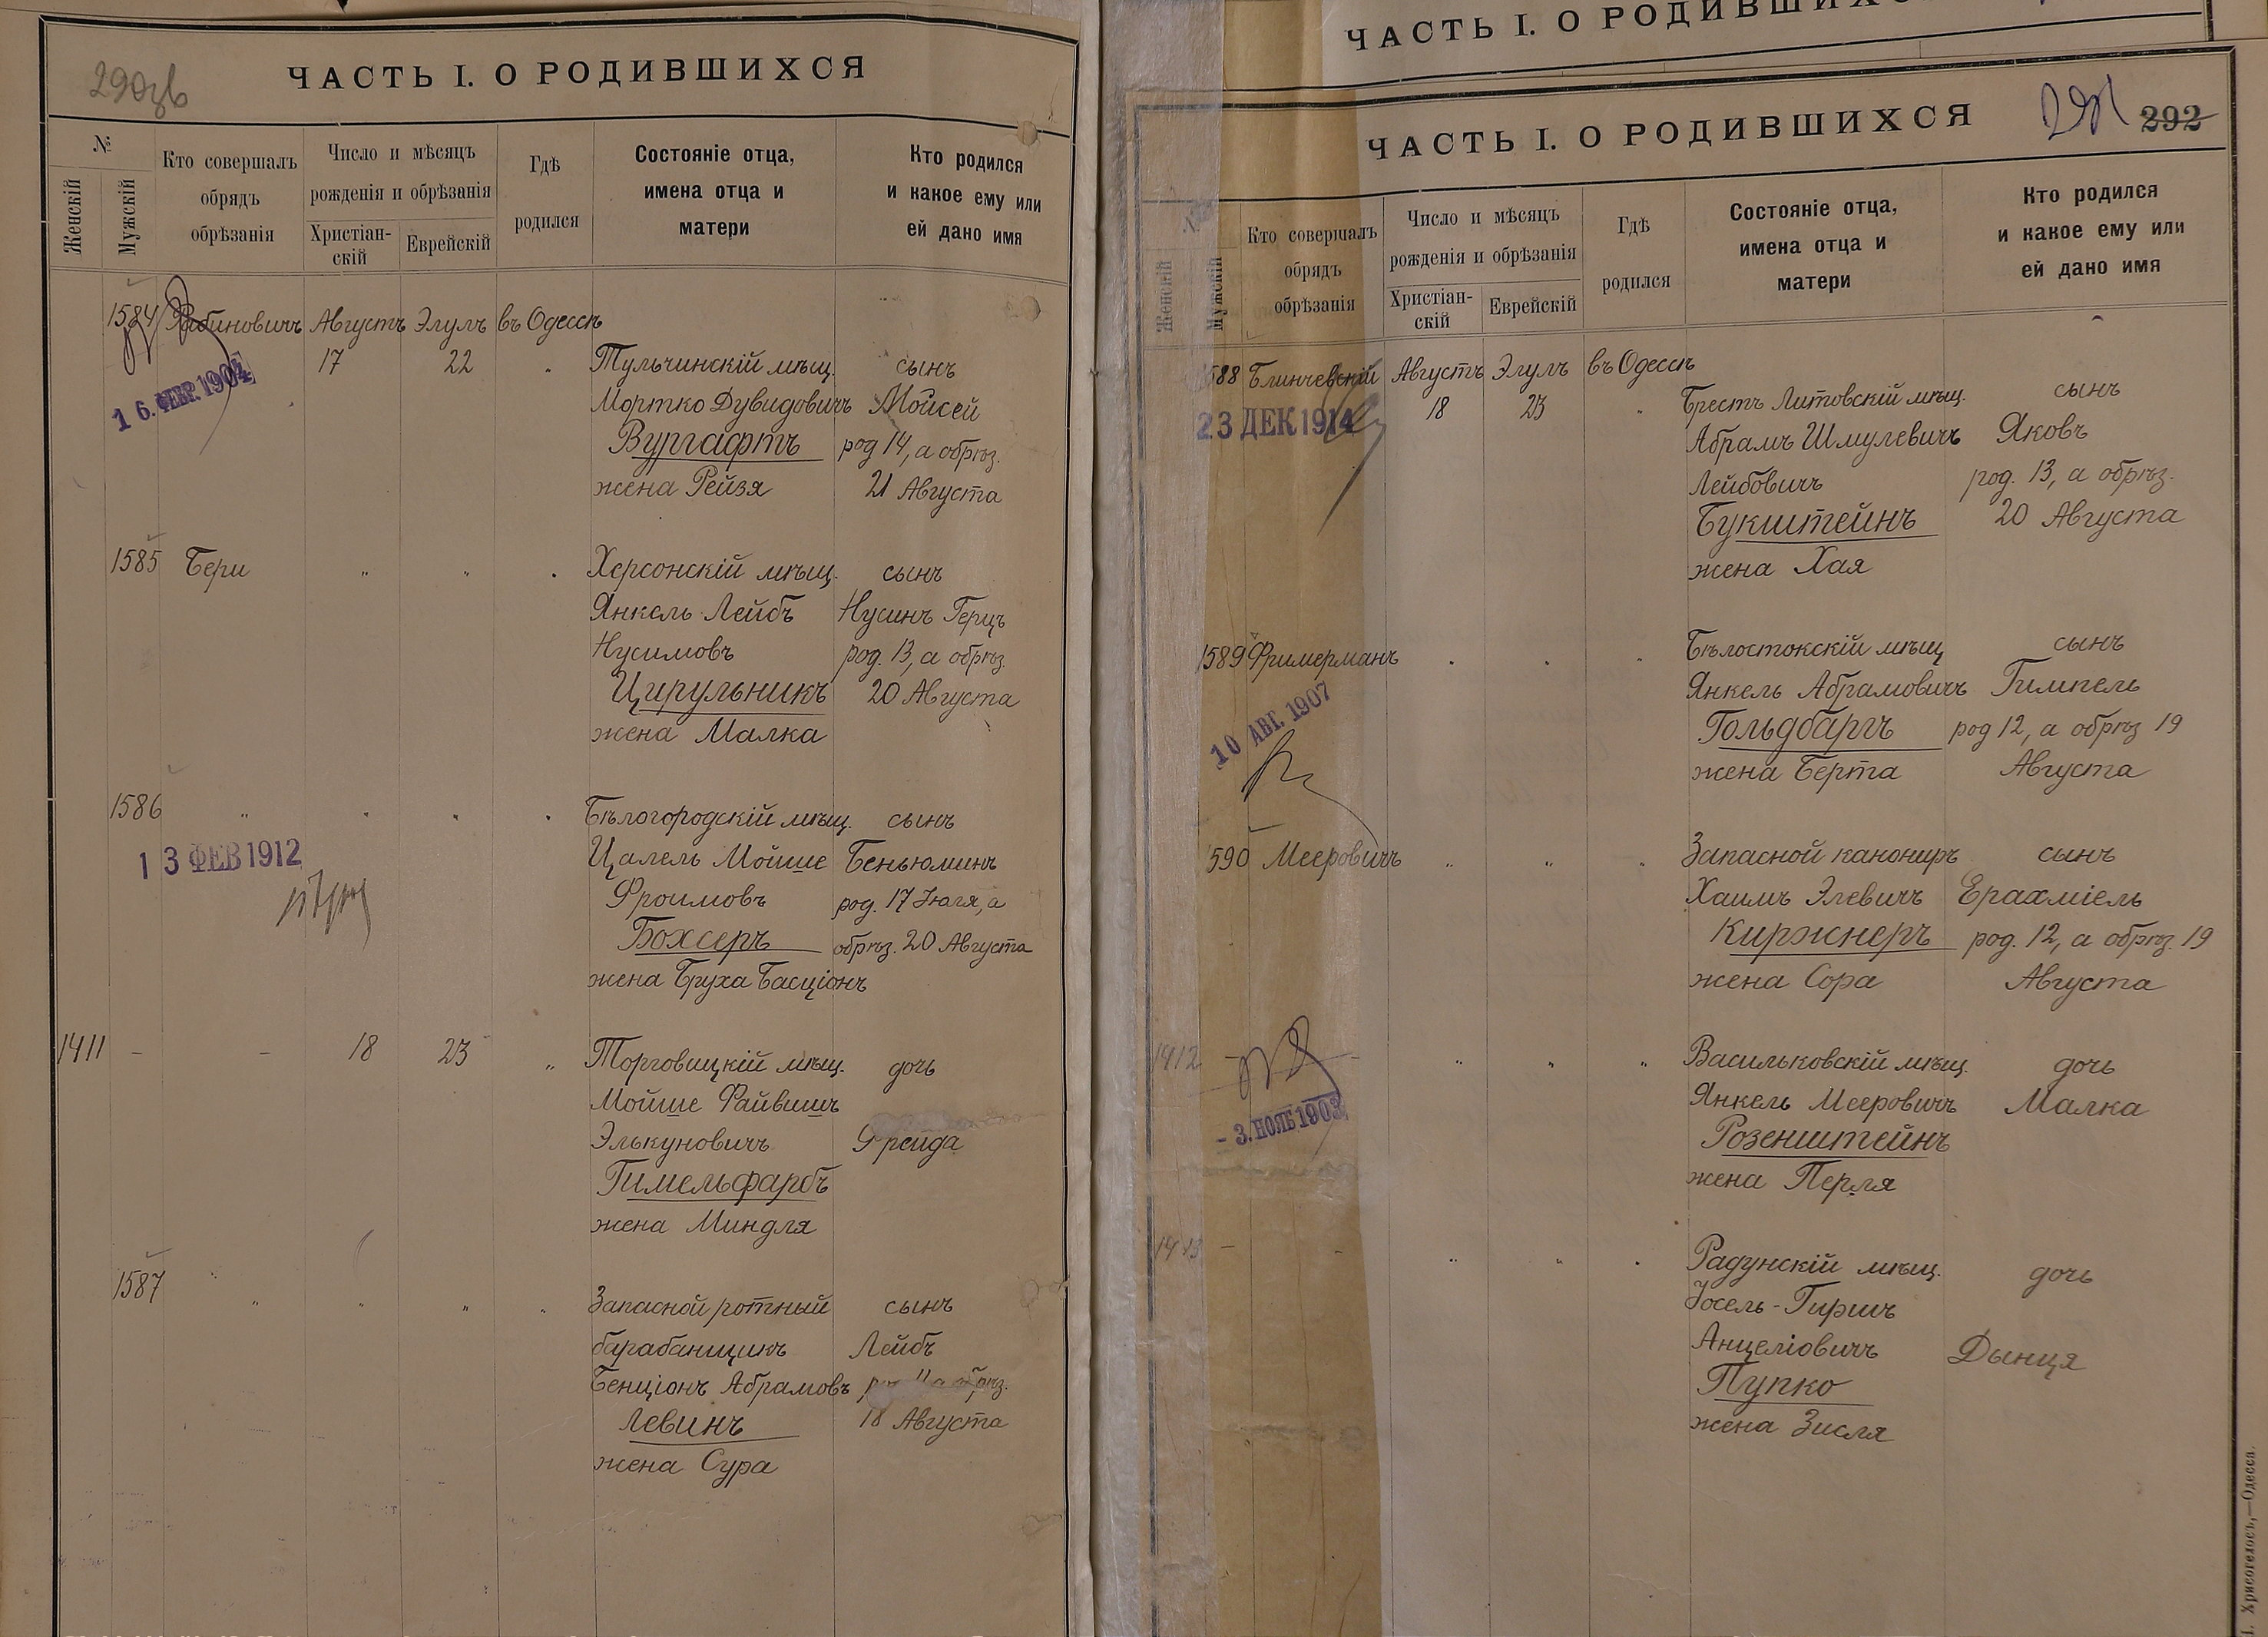 ЧАСТЬ I. О РОДИВШИХСЯ
№
Женскій
Мужскій
Кто совершалъ
обрядъ
обрѣзанія
Число и мѣсяцъ
рожденія и обрѣзанія
Христіан-
скій
Еврейскій
Гдѣ
родился
Состояніе отца,
имена отца и
матери
Кто родился
и какое ему или
ей дано имя
1584 Рабиновичъ Августъ Элулъ въ Одессѣ
17 22 Тульчинскій мѣщ. сынъ
16. ФЕВР. 1904
Мортко Дувидовичъ Мойсей
Вургафтъ род 14, а обрѣз.
жена Рейзя 21 Августа
1585 Бери " " Херсонскій мѣщ. сынъ
Янкель Лейбъ Нусинъ Герцъ
Нусимовъ род. 13, а обрѣз.
Цирульникъ 20 Августа
жена Малка
1586 " " " " Бѣлогородскій мѣщ. сынъ
13 ФЕВ 1912
Цалель Мойше Беньюминъ
Фроимовъ род. 17 Іюля, а
Бохсеръ обрѣз. 20 Августа
жена Бруха Басціонъ
1411 - - 18 23 " Торговицкій мѣщ. дочь
Мойше Файвишъ
Элькуновичъ Фрейда
Гимельфарбъ
жена Миндля
1587 " " " " Запасной ротный сынъ
барабанщикъ Лейбъ
Бенціонъ Абрамовъ обрѣз.
Левинъ 18 Августа
жена Сура
ЧАСТЬ I. О РОДИВШИХСЯ
ЧАСТЬ I. О РОДИВШИХСЯ
291 292
№
Женскій
Мужскій
Кто совершалъ
обрядъ
обрѣзанія
Число и мѣсяцъ
рожденія и обрѣзанія
Христіан-
скій
Еврейскій
Гдѣ
родился
Состояніе отца,
имена отца и
матери
Кто родился
и какое ему или
ей дано имя
588 Блинчевскій Августъ Элулъ въ Одессѣ
23 ДЕК 1914
18 23 " Брестъ Литовскій мѣщ. сынъ
Абрамъ Шмулевичъ Яковъ
Лейбовичъ род. 13, а обрѣз.
Букштейнъ 20 Августа
жена Хая
1589 Фримерманъ " " " Бѣлостокскій мѣщ сынъ
10 АВГ. 1907
Янкель Абрамовичъ Гимпель
Гольдбаргъ род 12, а обрѣз 19
жена Берта Августа
590 Мееровичъ " " " Запасной канониръ сынъ
Хаимъ Элевичъ Ерахміель
Киржнеръ род. 12, а обрѣз. 19
жена Сора Августа
1412 - " " " Васильковскій мѣщ. дочь
- 3. НОЯБ 1903
Янкель Мееровичъ Малка
Розенштейнъ
жена Перля
1413 - - " " " Радунскій мѣщ. дочь
Іосель-Гиршъ
Анцеліовичъ Дынця
Пупко
жена Зисля
І. Хрисогелосъ,—Одесса.